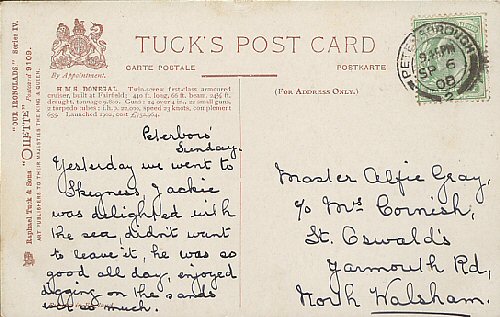 TUCK'S POST CARD
CARTE POSTALE
POSTKARTE
By Appointment.
(FOR ADDRESS ONLY.)
H.M.S. DONEGAL Twin-screw first class armoured
cruiser, built at Fairfield: 440 ft. long, 66 ft. beam, 24½ ft.
draught, tonnage 9,800. Guns: 14 over 4 in., 21 small guns,
2 torpedo tubes: i.h.p. 22,000, speed 23 knots, complement
655 Launched 1902, cost
Raphael Tuck & Sons' "OILETTE" Postcard 9109.
"OUR IRONCLADS" Series IV.
ART PUBLISHERS TO THEIR MAJESTIES THE KING & QUEEN.
PETERBOROUGH
SP 6
08
Peterboro'
Sunday.
Yesterday we went to
Skegness Jackie
was delighted with
the sea, didn't want
to leave it, he was so
good all day, enjoyed
digging on the sands
so much.
Master Alfie Gray,
c/o Mrs Cornish,
St. Oswald's
Yarmouth Rd,
North Walsham.